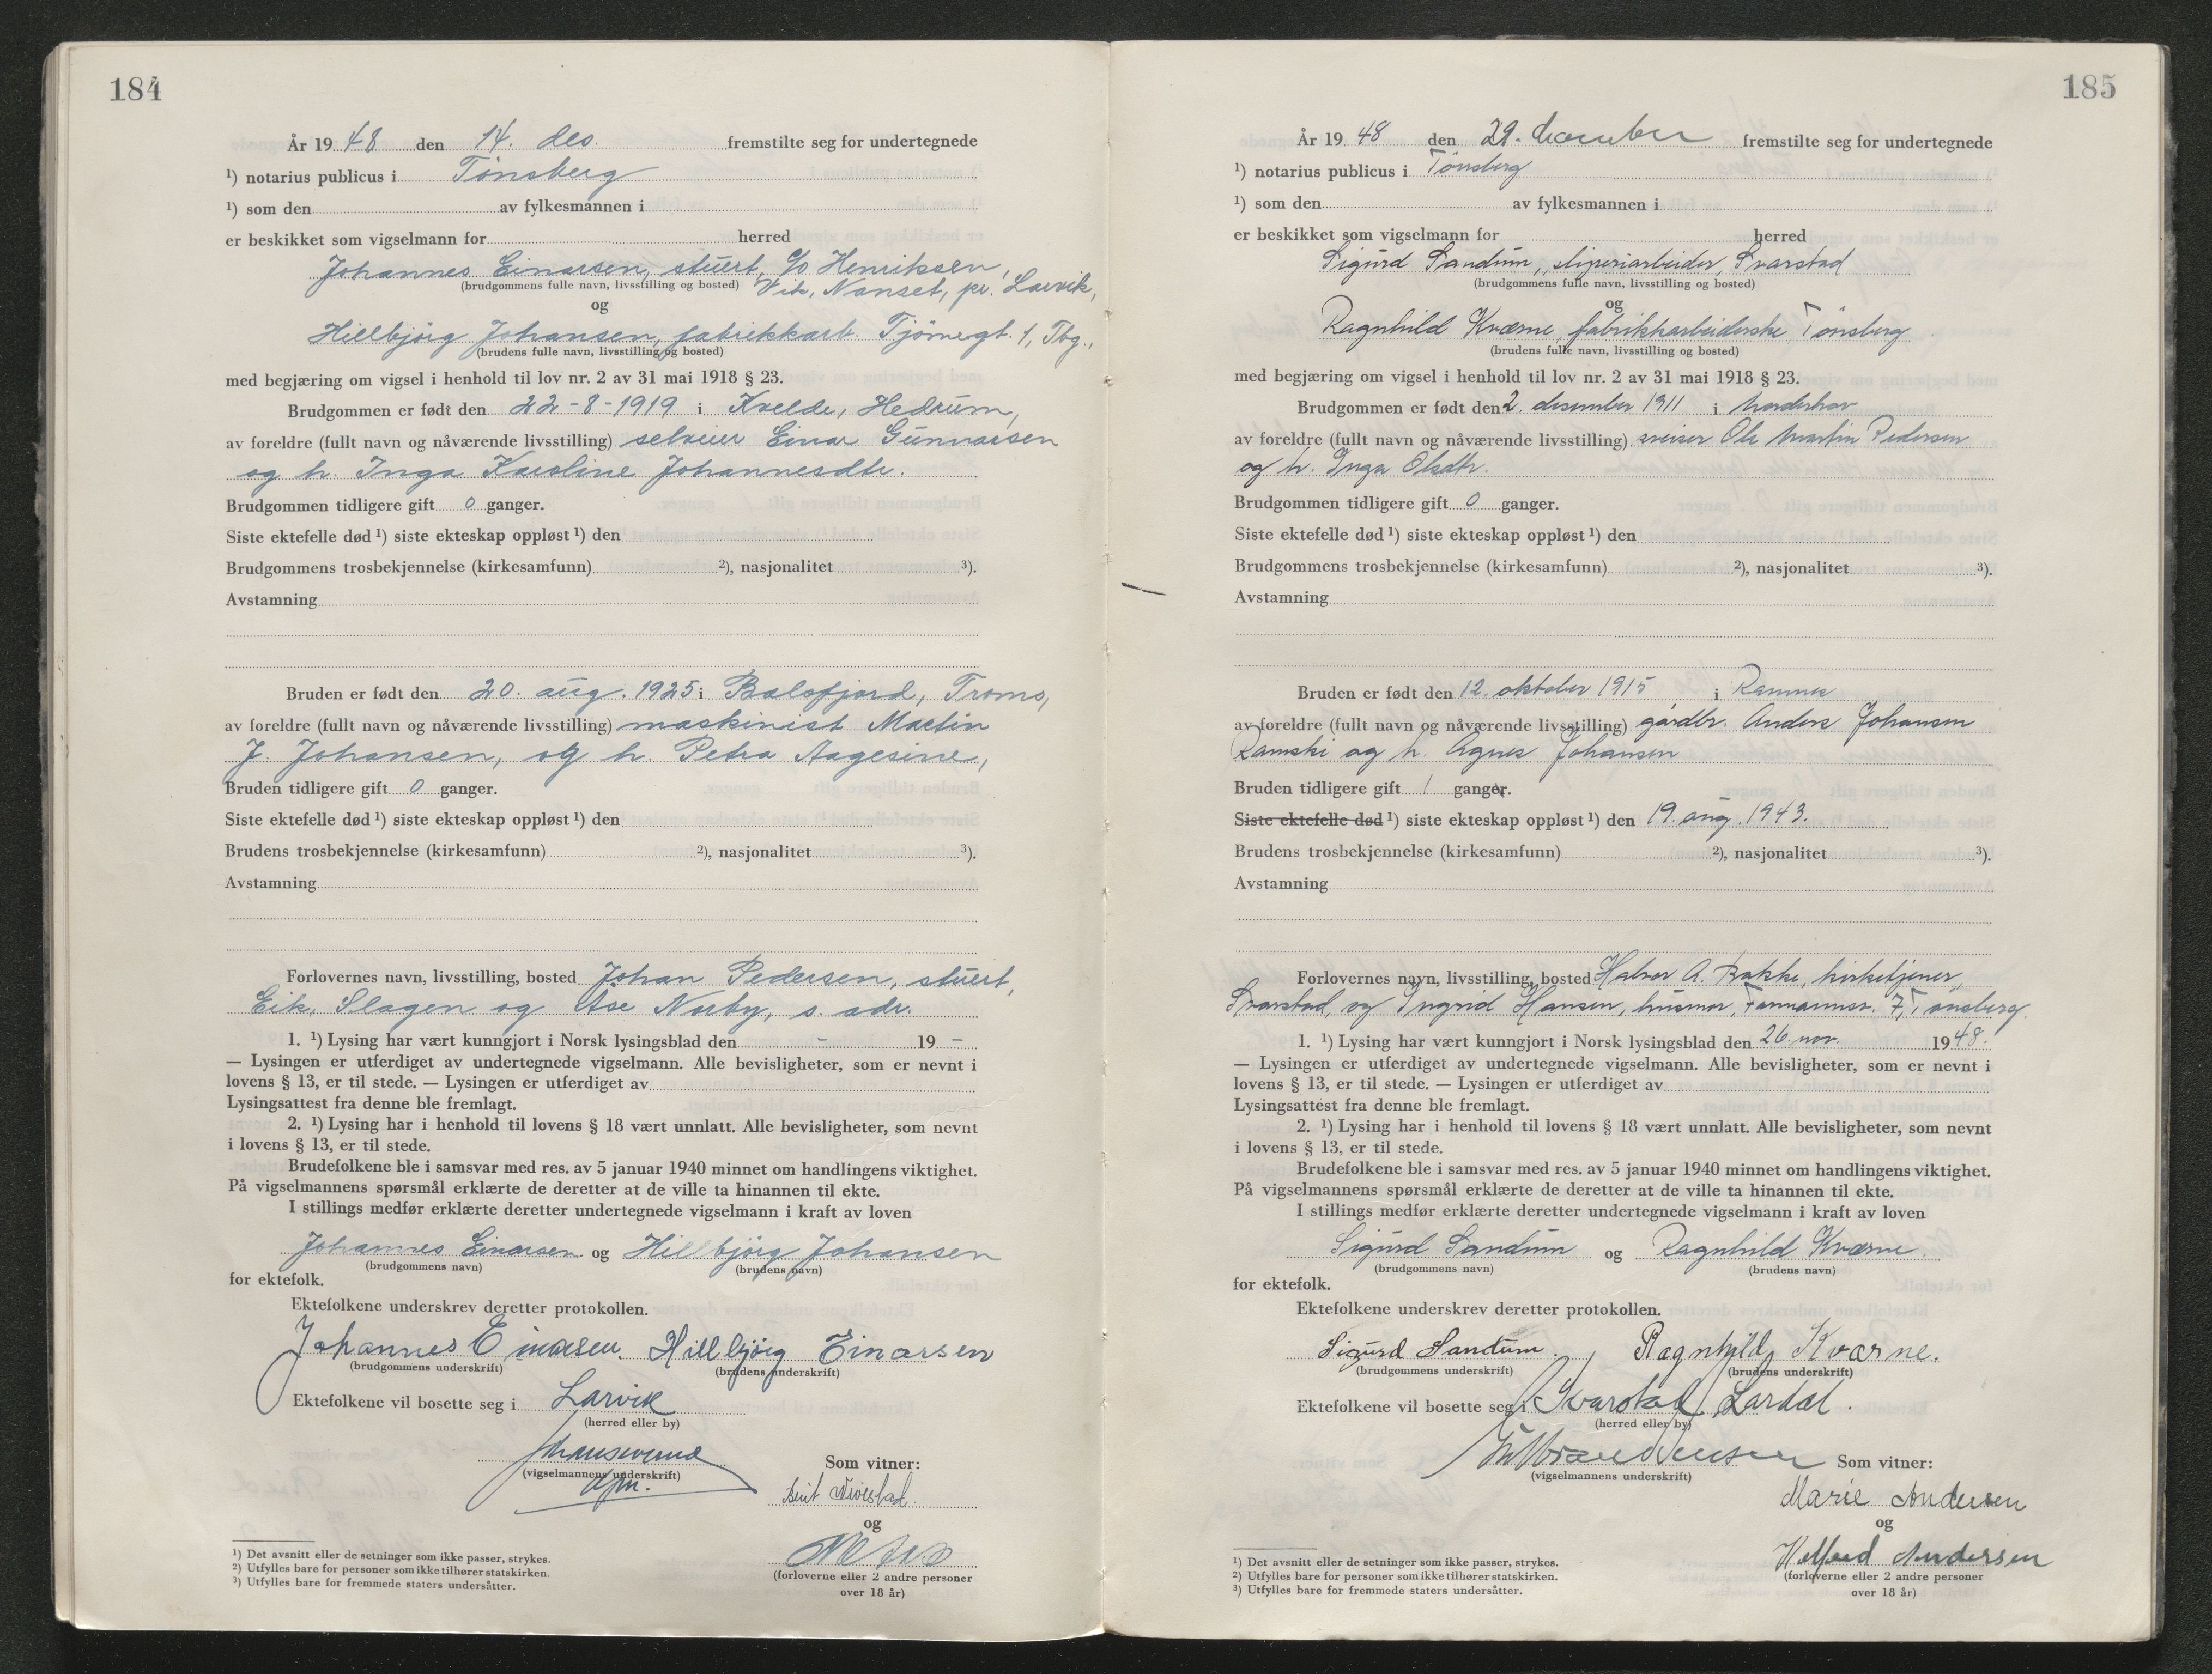 184
År 1948 den 14. des. fremstilte seg for undertegnede
¹) notarius publicus i Tønsberg
¹) som den av fylkesmannen i
er beskikket som vigselmann for herred
Johannes Einarsen, stuert, c/o Henriksen,
(brudgommens fulle navn, livsstilling og bosted) Vik, Nanset, pr. Larvik,
og
Hillbjörg Johansen, fabrikkarb. Tjömegt. 1, Tbg.,
(brudens fulle navn, livsstilling og bosted)
med begjæring om vigsel i henhold til lov nr. 2 av 31 mai 1918 § 23.
Brudgommen er født den 22-8-1919 i Kvelde, Hedrum,
av foreldre (fullt navn og nåværende livsstilling) selveier Einar Gunnarsen
og h. Inga Karoline Johannesdtr.
Brudgommen tidligere gift 0 ganger.
Siste ektefelle død ¹) siste ekteskap oppløst ¹) den
Brudgommens trosbekjennelse (kirkesamfunn) ²), nasjonalitet ³).
Avstamning
Bruden er født den 20. aug. 1925 i Balsfjord, Troms,
av foreldre (fullt navn og nåværende livsstilling) maskinist Martin
J. Johansen, og h. Petra Aagesine,
Bruden tidligere gift 0 ganger.
Siste ektefelle død ¹) siste ekteskap oppløst ¹) den
Brudens trosbekjennelse (kirkesamfunn) ²), nasjonalitet ³).
Avstamning
Forlovernes navn, livsstilling, bosted Johan Pedersen, stuert,
Eik, Slagen og Åse Norby, s. adr.
1. ¹) Lysing har vært kunngjort i Norsk lysingsblad den - 19 -
— Lysingen er utferdiget av undertegnede vigselmann. Alle bevisligheter, som er nevnt i
lovens § 13, er til stede. — Lysingen er utferdiget av
Lysingsattest fra denne ble fremlagt.
2. ¹) Lysing har i henhold til lovens § 18 vært unnlatt. Alle bevisligheter, som nevnt
i lovens § 13, er til stede.
Brudefolkene ble i samsvar med res. av 5 januar 1940 minnet om handlingens viktighet.
På vigselmannens spørsmål erklærte de deretter at de ville ta hinannen til ekte.
I stillings medfør erklærte deretter undertegnede vigselmann i kraft av loven
Johannes Einarsen og Hillbjörg Johansen
(brudgommens navn) (brudens navn)
for ektefolk.
Ektefolkene underskrev deretter protokollen.
Johannes Einarsen. Hillbjörg Einarsen
(brudgommens underskrift) (brudens underskrift)
Ektefolkene vil bosette seg i Larvik
(herred eller by)
(vigselmannens underskrift)
Som vitner:
Berit
og
(forloverne eller 2 andre personer
over 18 år)
¹) Det avsnitt eller de setninger som ikke passer, strykes.
²) Utfylles bare for personer som ikke tilhører statskirken.
³) Utfylles bare for fremmede staters undersåtter.
185
År 1948 den 29. desember fremstilte seg for undertegnede
¹) notarius publicus i Tönsberg
¹) som den av fylkesmannen i
er beskikket som vigselmann for herred
Sigurd Sandum, sliperiarbeider, Svarstad
(brudgommens fulle navn, livsstilling og bosted)
og
Ragnhild Kværne, fabrikkarbeiderske Tönsberg
(brudens fulle navn, livsstilling og bosted)
med begjæring om vigsel i henhold til lov nr. 2 av 31 mai 1918 § 23.
Brudgommen er født den 2. desember 1911 i Norderhov
av foreldre (fullt navn og nåværende livsstilling) sveiser Ole Martin Pedersen
og h. Inga Olsdtr.
Brudgommen tidligere gift 0 ganger.
Siste ektefelle død ¹) siste ekteskap oppløst ¹) den
Brudgommens trosbekjennelse (kirkesamfunn) ²), nasjonalitet ³).
Avstamning
Bruden er født den 12. oktober 1915 i Ramnes
av foreldre (fullt navn og nåværende livsstilling) gårdbr. Anders Johansen
Ramski og h. Agnes Johansen
Bruden tidligere gift 1 ganger.
Siste ektefelle død ¹) siste ekteskap oppløst ¹) den 19. aug. 1943.
Brudens trosbekjennelse (kirkesamfunn) ²), nasjonalitet ³).
Avstamning
Forlovernes navn, livsstilling, bosted Halvor A. Bakke, kirketjener,
Svarstad, og Ingrid Hansen, husmor, Farmannsv. 7, Tønsberg.
1. ¹) Lysing har vært kunngjort i Norsk lysingsblad den 26. nov. 1948.
— Lysingen er utferdiget av undertegnede vigselmann. Alle bevisligheter, som er nevnt i
lovens § 13, er til stede. — Lysingen er utferdiget av
Lysingsattest fra denne ble fremlagt.
2. ¹) Lysing har i henhold til lovens § 18 vært unnlatt. Alle bevisligheter, som nevnt
i lovens § 13, er til stede.
Brudefolkene ble i samsvar med res. av 5 januar 1940 minnet om handlingens viktighet.
På vigselmannens spørsmål erklærte de deretter at de ville ta hinannen til ekte.
I stillings medfør erklærte deretter undertegnede vigselmann i kraft av loven
Sigurd Sandum og Ragnhild Kværne.
(brudgommens navn) (brudens navn)
for ektefolk.
Ektefolkene underskrev deretter protokollen.
Sigurd Sandum. Ragnhild Kværne.
(brudgommens underskrift) (brudens underskrift)
Ektefolkene vil bosette seg i Svarstad, Lardal.
(herred eller by)
(vigselmannens underskrift)
Som vitner:
Marie Andersen
og
Andersen
(forloverne eller 2 andre personer
over 18 år)
¹) Det avsnitt eller de setninger som ikke passer, strykes.
²) Utfylles bare for personer som ikke tilhører statskirken.
³) Utfylles bare for fremmede staters undersåtter.